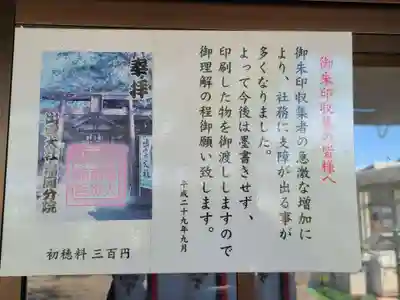 御朱印収集の皆様へ
御朱印収集者の急激な増加に
より、社務に支障が出る事が
多くなりました。
よって今後は墨書きせず、
印刷した物を御渡ししますので
御理解の程御願い致します。
平成二十九年九月
奉拝
出雲大社福岡分院
初穂料 三百円